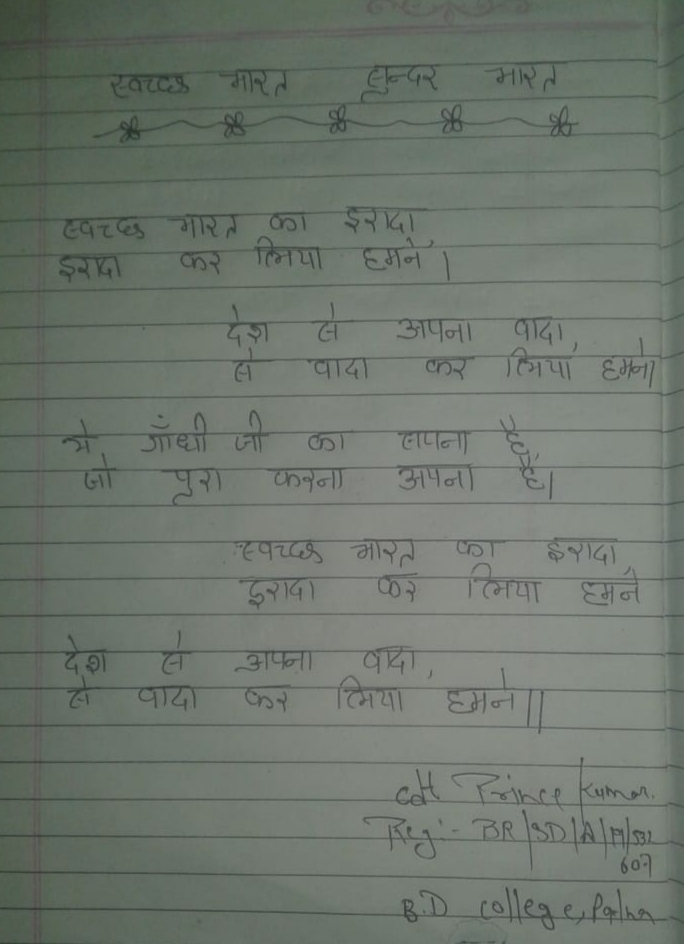 स्वच्छ भारत सुन्दर भारत
स्वच्छ भारत का इरादा,
इरादा कर लिया हमने।
देश से अपना वादा,
से वादा कर लिया हमने।
ये गाँधी जी का सपना है,
जो पुरा करना अपना है।
स्वच्छ भारत का इरादा,
इरादा कर लिया हमने
देश से अपना वादा,
से वादा कर लिया हमने॥
cdt Prince Kumar.
Reg:- BR/SD/A/19/532
607
B.D college, Patna